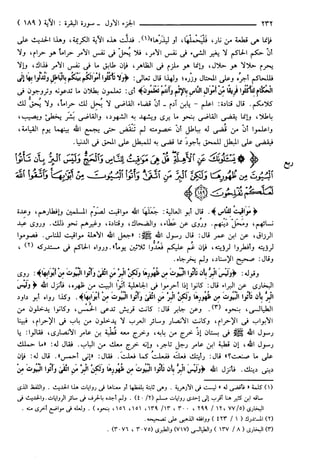 ٢٣٢ الجزء الأول ـ سورة البقرة : الآية ( ١٨٩ )
فإنما هي قطعة من نار، فليَحْمِلْها، أو ليَذَرْها»(١). فدلَّت هذه الآية الكريمة، وهذا الحديث على
أنّ حكم الحاكم لا يغير الشيء في نفس الأمر، فلا يُحلّ في نفس الأمر حرامًا هو حرام، ولا
يحرم حلالًا هو حلال، وإنما هو ملزم في الظاهر، فإن طابق ما في نفس الأمر فذاك، وإلا
فللحاكم أجره وعلى المحتال وزْره، ولهذا قال تعالى: ﴿وَلَا تَأْكُلُوا أَمْوَالَكُم بَيْنَكُم بِالْبَاطِلِ وَتُدْلُوا بِهَا إِلَى
الْحُكَّامِ لِتَأْكُلُوا فَرِيقًا مِّنْ أَمْوَالِ النَّاسِ بِالْإِثْمِ وَأَنتُمْ تَعْلَمُونَ﴾ أي: تعلمون بطلان ما تدعونه وتروجون في
كلامكم. قال قتادة: اعلم - يابن آدم - أنّ قضاء القاضي لا يُحِل لك حراماً، ولا يُحقّ لك
باطلاً، وإنما يقضي القاضي بنحو ما يرى ويشهد به الشهود، والقاضي بَشَر يخطئ ويصيب،
واعلموا أنّ من قُضي له بباطل أنّ خصومته لم تَنْقَض حتى يجمع الله بينهما يوم القيامة،
فيقضي على المبطل للمحق بأجودَ مما قضي به للمبطل على المحق في الدنيا.
ربع
﴿ يَسْـَٔلُونَكَ عَنِ الْأَهِلَّةِ قُلْ هِيَ مَوَاقِيتُ لِلنَّاسِ وَالْحَجِّ وَلَيْسَ الْبِرُّ بِأَن تَأْتُوا
الْبُيُوتَ مِن ظُهُورِهَا وَلَٰكِنَّ الْبِرَّ مَنِ اتَّقَىٰ وَأْتُوا الْبُيُوتَ مِنْ أَبْوَابِهَا وَاتَّقُوا اللَّهَ
لَعَلَّكُمْ تُفْلِحُونَ ١٨٩﴾
﴿مَوَاقِيتُ لِلنَّاسِ﴾. قال أبو العالية: جَعَلَها الله مواقيت لصَوْم المسلمين وإفطارهم، وعدة
نسائهم، ومَحَلّ دَيْنهم. ورُوي عن عطاء، والضحاك، وقتادة، وغيرهم نحو ذلك. وروى عبد
الرزاق، عن ابن عمر قال: قال رسول الله ﷺ: «جعل الله الأهلة مواقيت للناس. فصوموا
لرؤيته وأفطروا لرؤيته، فإن غُم عليكم فعُدوا ثلاثين يوماً». ورواه الحاكم في مستدركه (٢)،
وقال: صحيح الإسناد، ولم يخرجاه.
وقوله: ﴿وَلَيْسَ الْبِرُّ بِأَن تَأْتُوا الْبُيُوتَ مِن ظُهُورِهَا وَلَٰكِنَّ الْبِرَّ مَنِ اتَّقَىٰ وَأْتُوا الْبُيُوتَ مِنْ أَبْوَابِهَا﴾: روى
البخاري عن البراء قال: كانوا إذا أحرموا في الجاهلية أتوا البيت من ظهره، فأنزل الله ﴿وَلَيْسَ
الْبِرُّ بِأَن تَأْتُوا الْبُيُوتَ مِن ظُهُورِهَا وَلَٰكِنَّ الْبِرَّ مَنِ اتَّقَىٰ وَأْتُوا الْبُيُوتَ مِنْ أَبْوَابِهَا﴾. وكذا رواه أبو داود
الطيالسي، بنحوه (٣). وعن جابر قال: كانت قريش تدعى الحُمْس، وكانوا يدخلون من
الأبواب في الإحرام، وكانت الأنصار وسائر العرب لا يدخلون من باب في الإحرام، فبينا
رسول الله ﷺ في بستان إذْ خرج من بابه، وخرج معه قُطْبة بن عامر الأنصاري، فقالوا: يا
رسول الله، إن قطبة بن عامر رجل تاجر، وإنه خرج معك من الباب. فقال له: «ما حملك
على ما صنعت؟» قال: رأيتك فعلته ففعلتُ كما فعلتَ. فقال: «إني أحمسيّ». قال له: فإن
ديني دينك. فأنزل الله ﴿وَلَيْسَ الْبِرُّ بِأَن تَأْتُوا الْبُيُوتَ مِن ظُهُورِهَا وَلَٰكِنَّ الْبِرَّ مَنِ اتَّقَىٰ وَأْتُوا الْبُيُوتَ مِنْ
(١) كلمة « فأقضي له » ليست في الأزهرية. وهي ثابتة بلفظها أو معناها في روايات هذا الحديث. واللفظ الذي
ساقه ابن كثير هنا أقرب إلى إحدى روايات مسلم (٤٠/٢). ولم أجده بالحرف في سائر الروايات. والحديث في
البخاري (٧٧/٥، ١٢ / ٢٩٩، ٣٠٠، ١٣٩/١٣، ١٥١، ١٥٦، بنحوه). ولعله في مواضع أخرى منه.
(٢) المستدرك (١ / ٤٢٣) ووافقه الذهبي على تصحيحه.
(٣) البخاري (٨ / ١٣٧) والطيالسي (٧١٧) والطبري (٣٠٧٥، ٣٠٧٦).